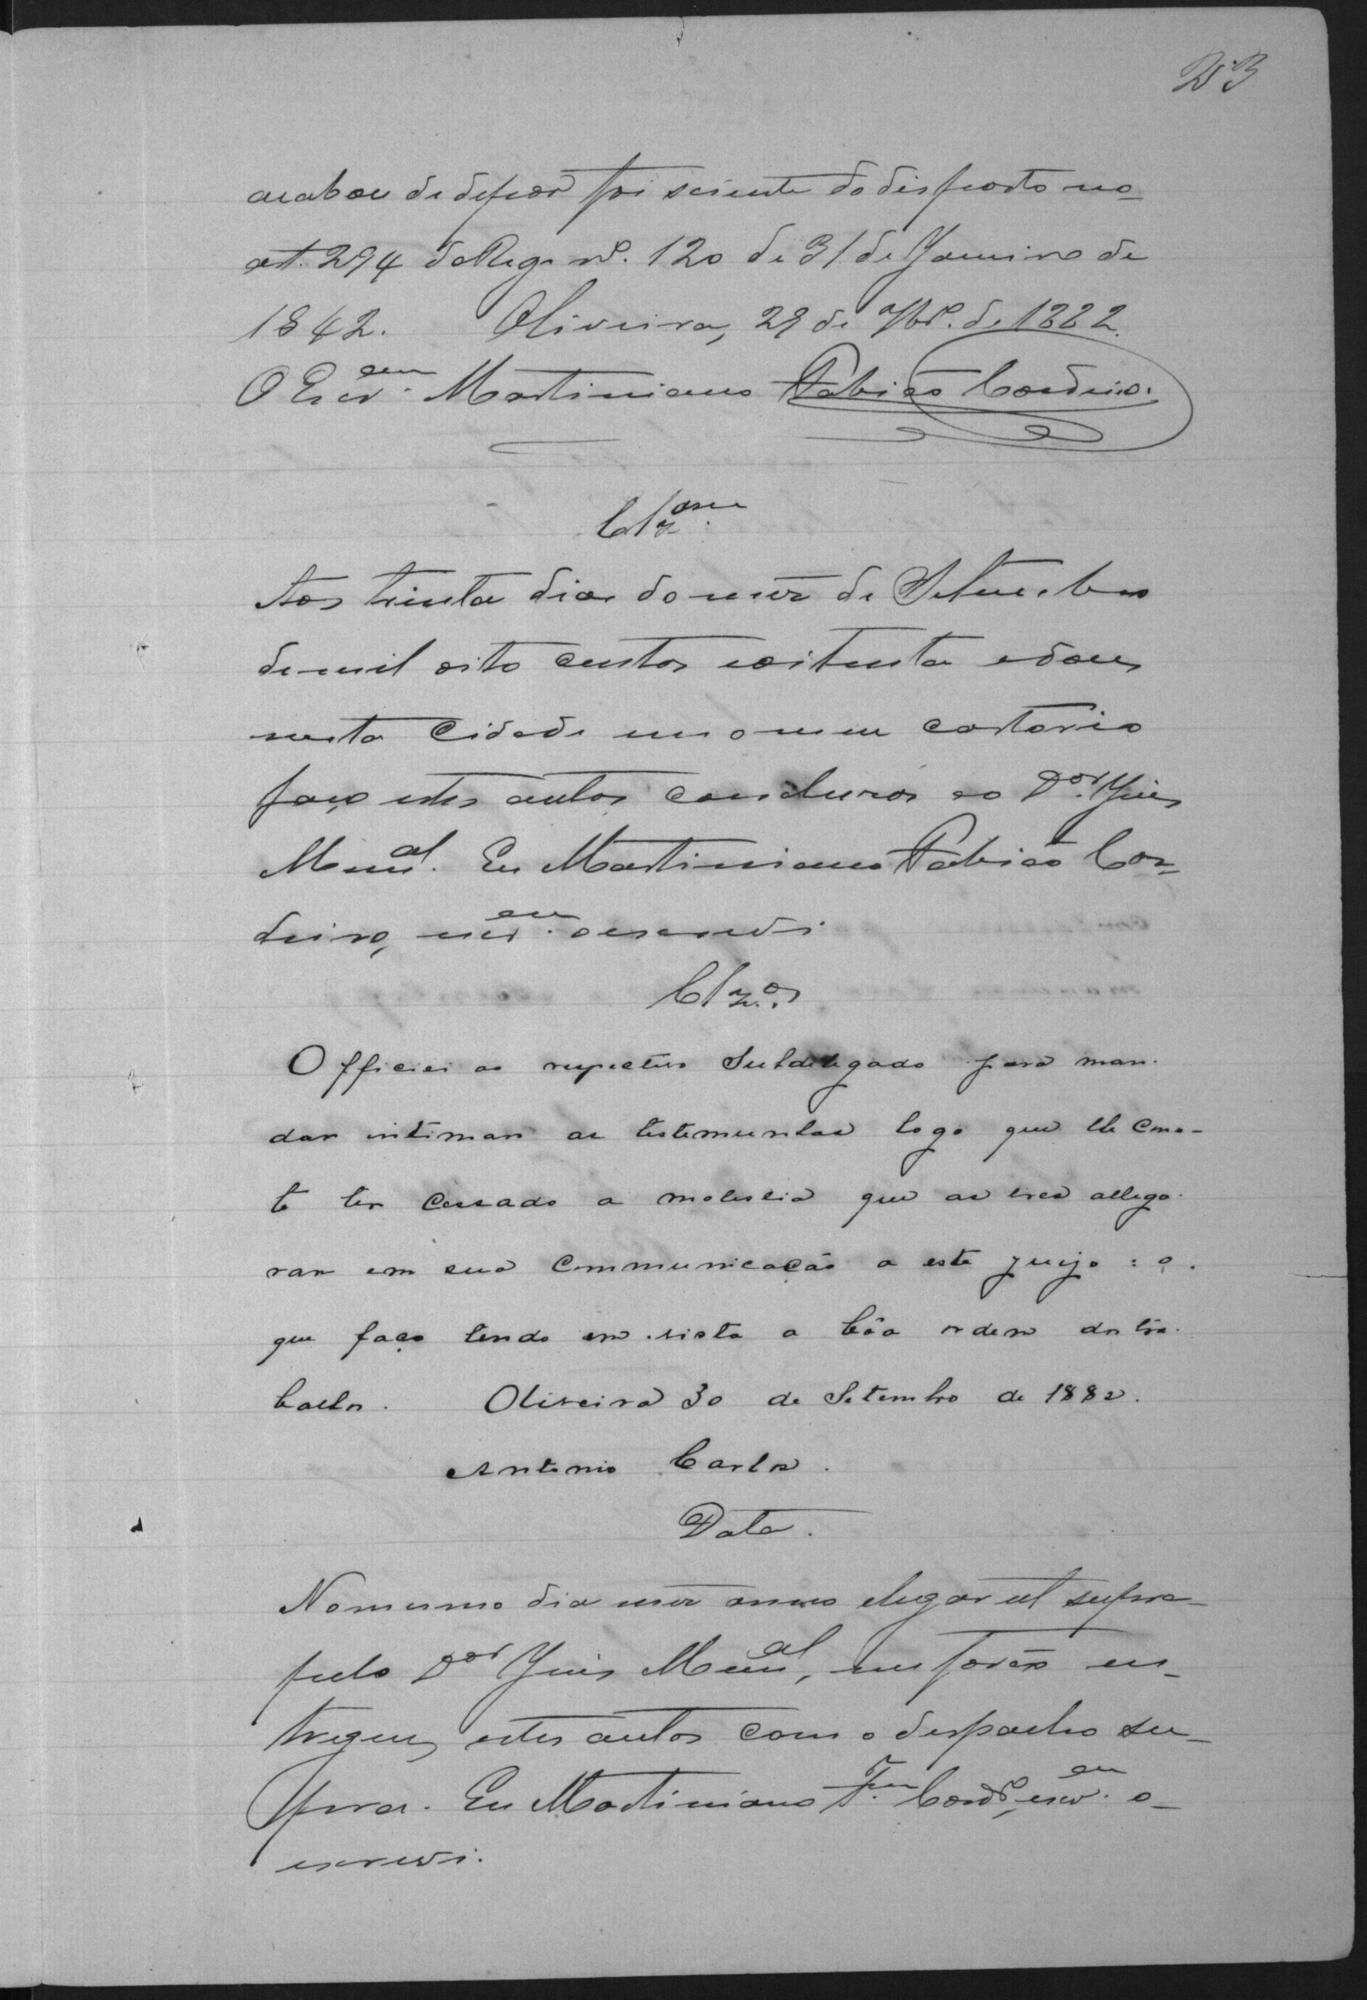 23
acabou de depor foi sciente do disposto no
art. 294 do Reg. nº. 120 de 31 de Janeiro de
1842. Oliveira, 29 de 7brº. de 1882.
O Escram. Martiniano Fabião Cordeiro.
Clzam.
Aos trinta dias do mez de Setembro
de mil oito centos e oitenta e dous
nesta Cidade em o meu cartorio
faço estes autos conclusos ao Dor. Juis
Munal. Eu Martiniano Fabião Cor-
deiro, escram. o escrevi
Clzos.
Officiei ao respectivo Subdelegado para man-
dar intimar as testemunhas logo que lhe cons-
te ter cessado a molestia que as tres allega-
ram em sua communicação a este juizo: o
que faço tendo em vista a bôa ordem dos tra-
balhos. Oliveira 30 de Setembro de 1882.
Antonio Carlos.
Data.
No mesmo dia mez anno e lugar ut supra
pelo Dor Juis Munal, me forão en-
tregues estes autos com o despacho su-
pra. Eu Martiniano Fam. Cordº, escram. o
escrevi.